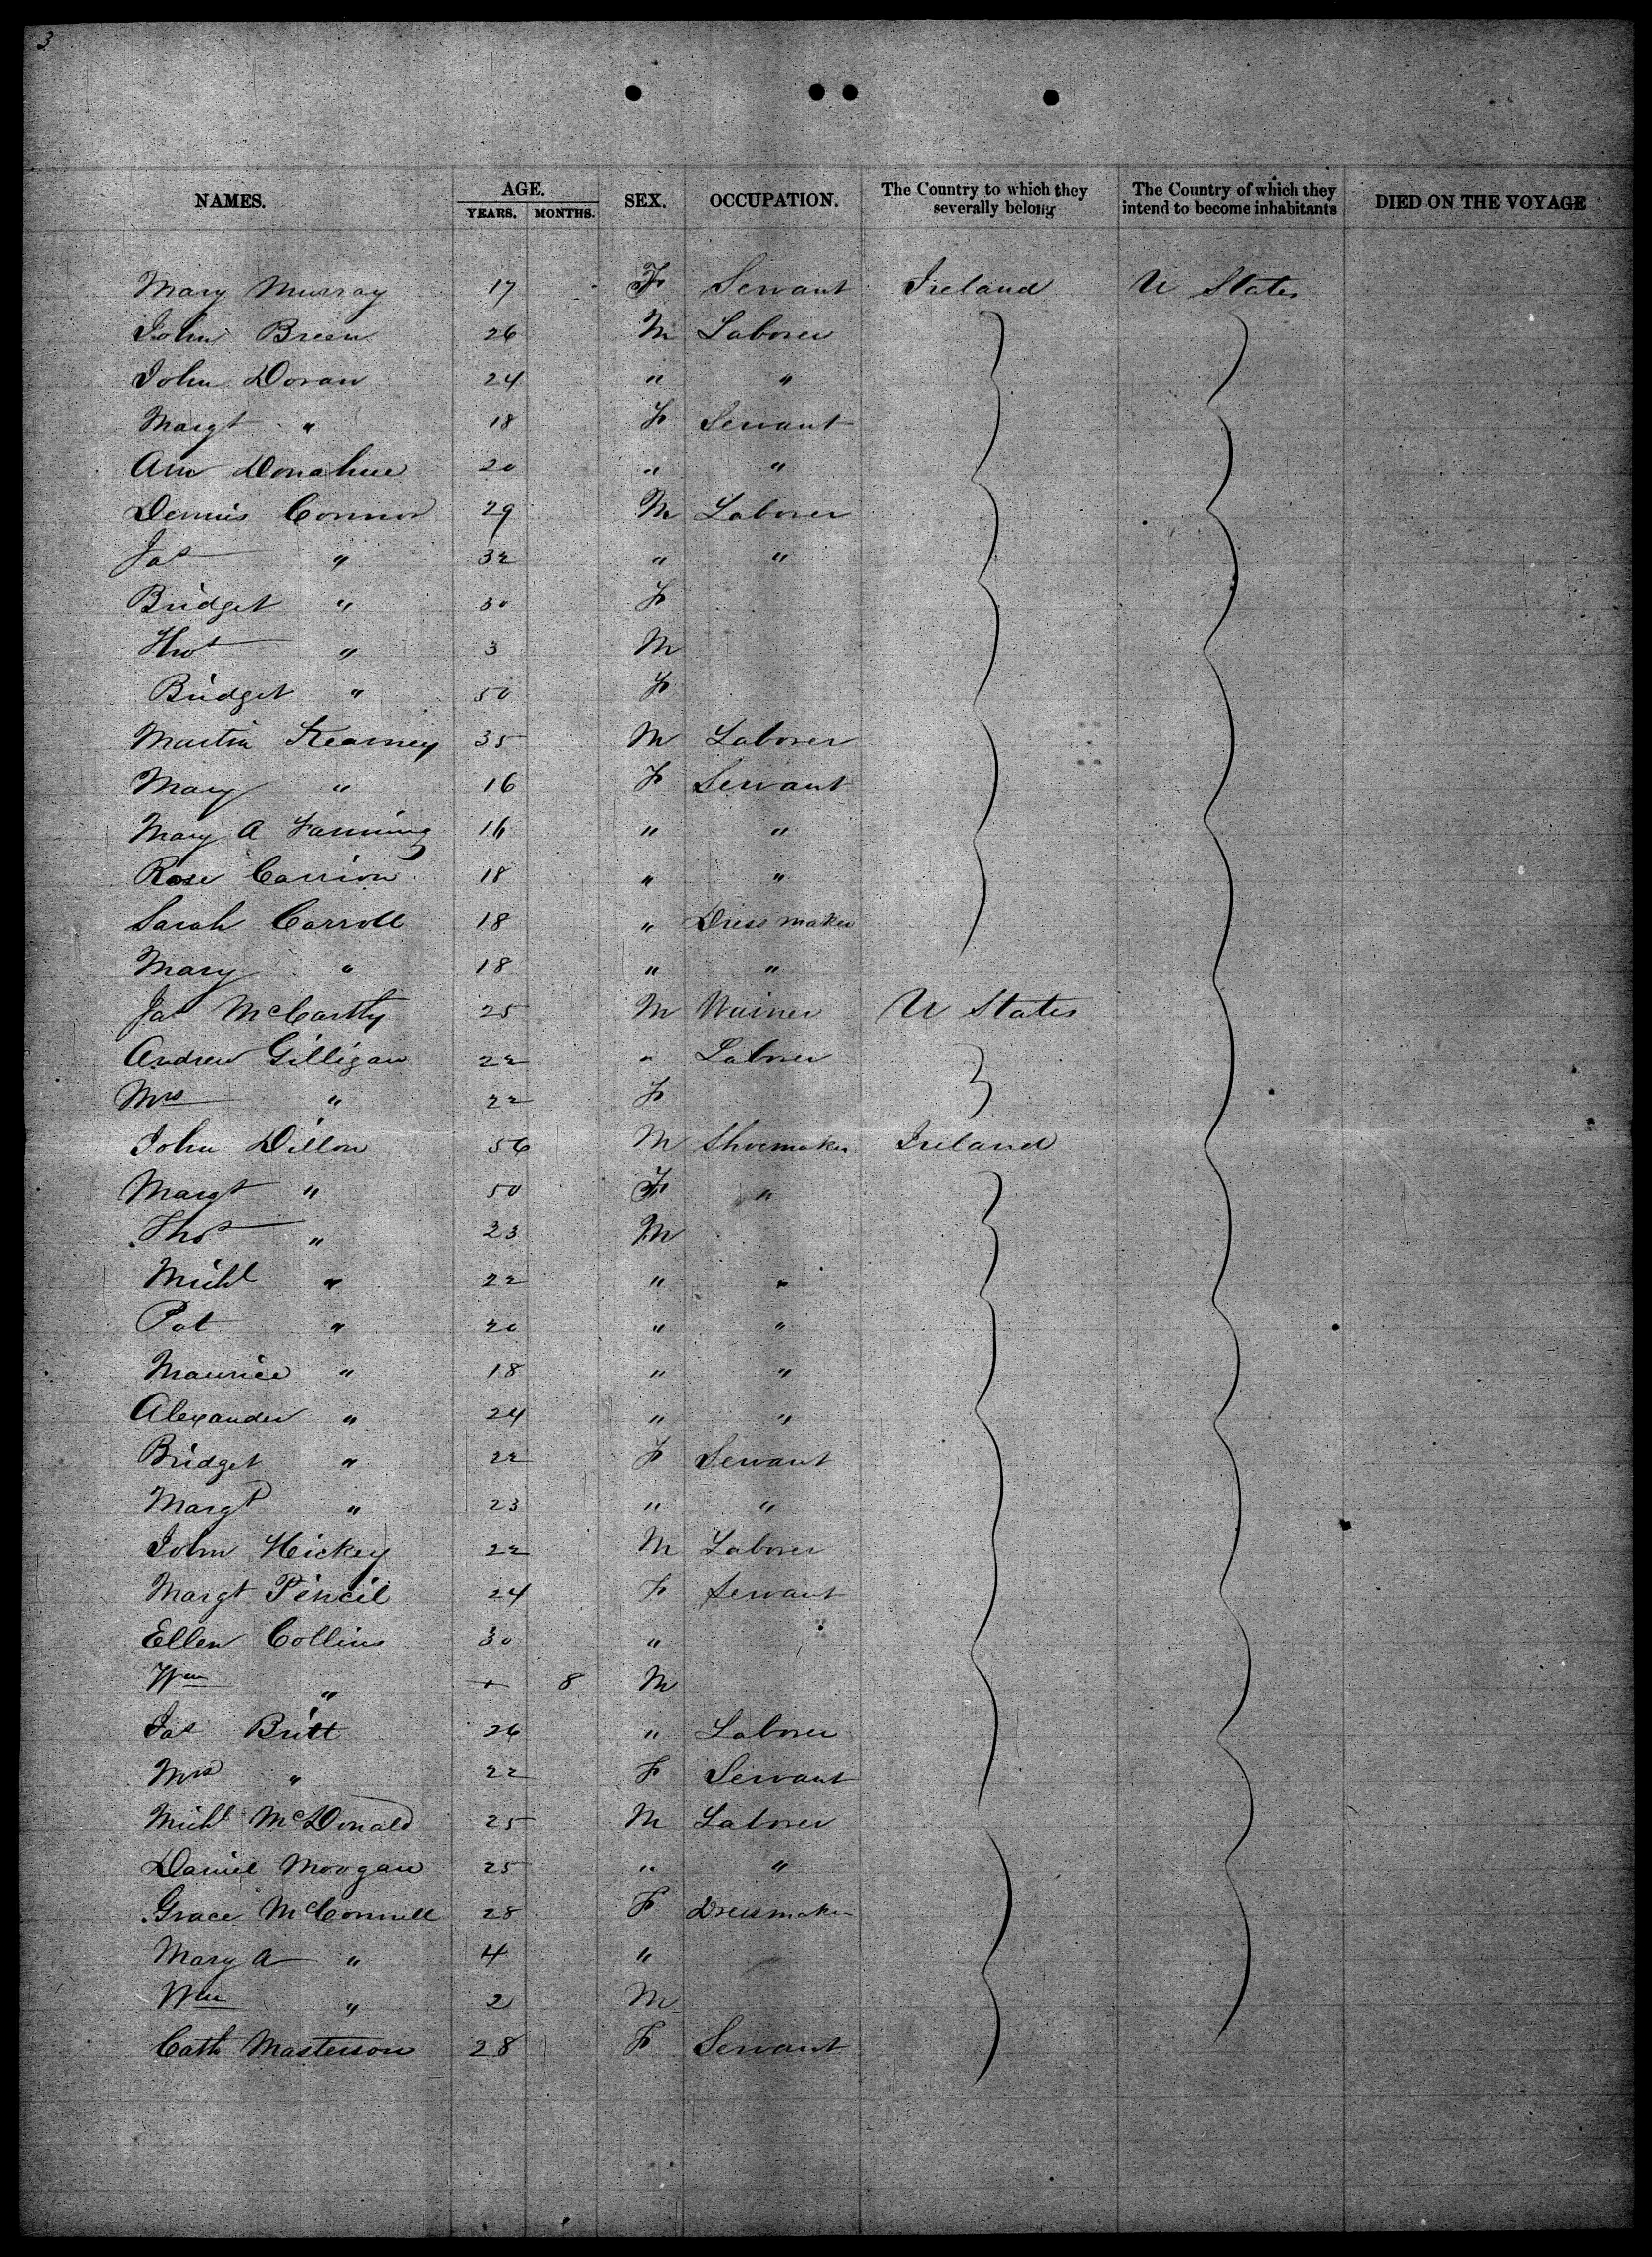 3
NAMES. AGE. SEX. OCCUPATION. The Country to which they severally belong The Country of which they intend to become inhabitants DIED ON THE VOYAGE
YEARS. MONTHS.
Mary Murray 17 F Servant Ireland U States
John Breen 26 M Laborer
John Doran 24 " "
Margt " 18 F Servant
Ann Donahue 20 " "
Dennis Connor 29 M Laborer
Jas " 32 " "
Bridget " 30 F
Thos " 3 M
Bridget " 50 F
Martin Kearney 35 M Laborer
Mary " 16 F Servant
Mary A Fanning 16 " "
Rose 18 " "
Sarah Carroll 18 " Dress maker
Mary " 18 " "
Jas McCarthy 25 M U States
Andrew Gilligan 22 " Laborer
Mrs " 22 F
John Dillon 56 M Shoemaker Ireland
Margt " 50 F "
Thos " 23 M
Michl " 22 " "
Pat " 20 " "
Maurice " 18 " "
Alexander " 24 " "
Bridget " 22 F Servant
Margt " 23 " "
John Hickey 22 M Laborer
Margt Pencil 24 F Servant
Ellen Collins 30 "
Wm " + 8 M
Jas Britt 26 " Laborer
Mrs " 22 F Servant
Michl McDonald 25 M Laborer
Daniel Morgan 25 " "
Grace McConnell 28 F Dressmaker
Mary A " 4 "
Wm " 2 M
Cath Masterson 28 F Servant